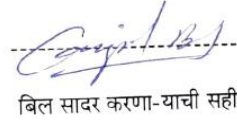 बिल सादर करणा-याची सही